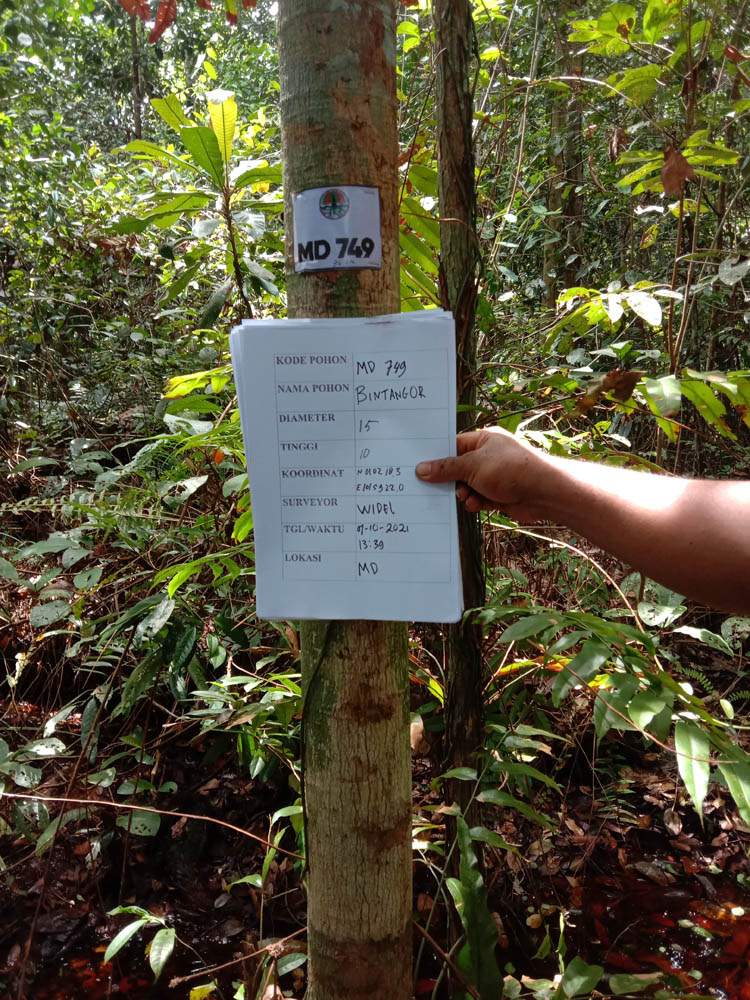 MD 749
KODE POHON MD 749
NAMA POHON BINTANGOR
DIAMETER 15
TINGGI 10
KOORDINAT N 01 02 18.3
E 101 59 22.0
SURVEYOR WIDEL
TGL/WAKTU 07-10-2021
13:39
LOKASI MD